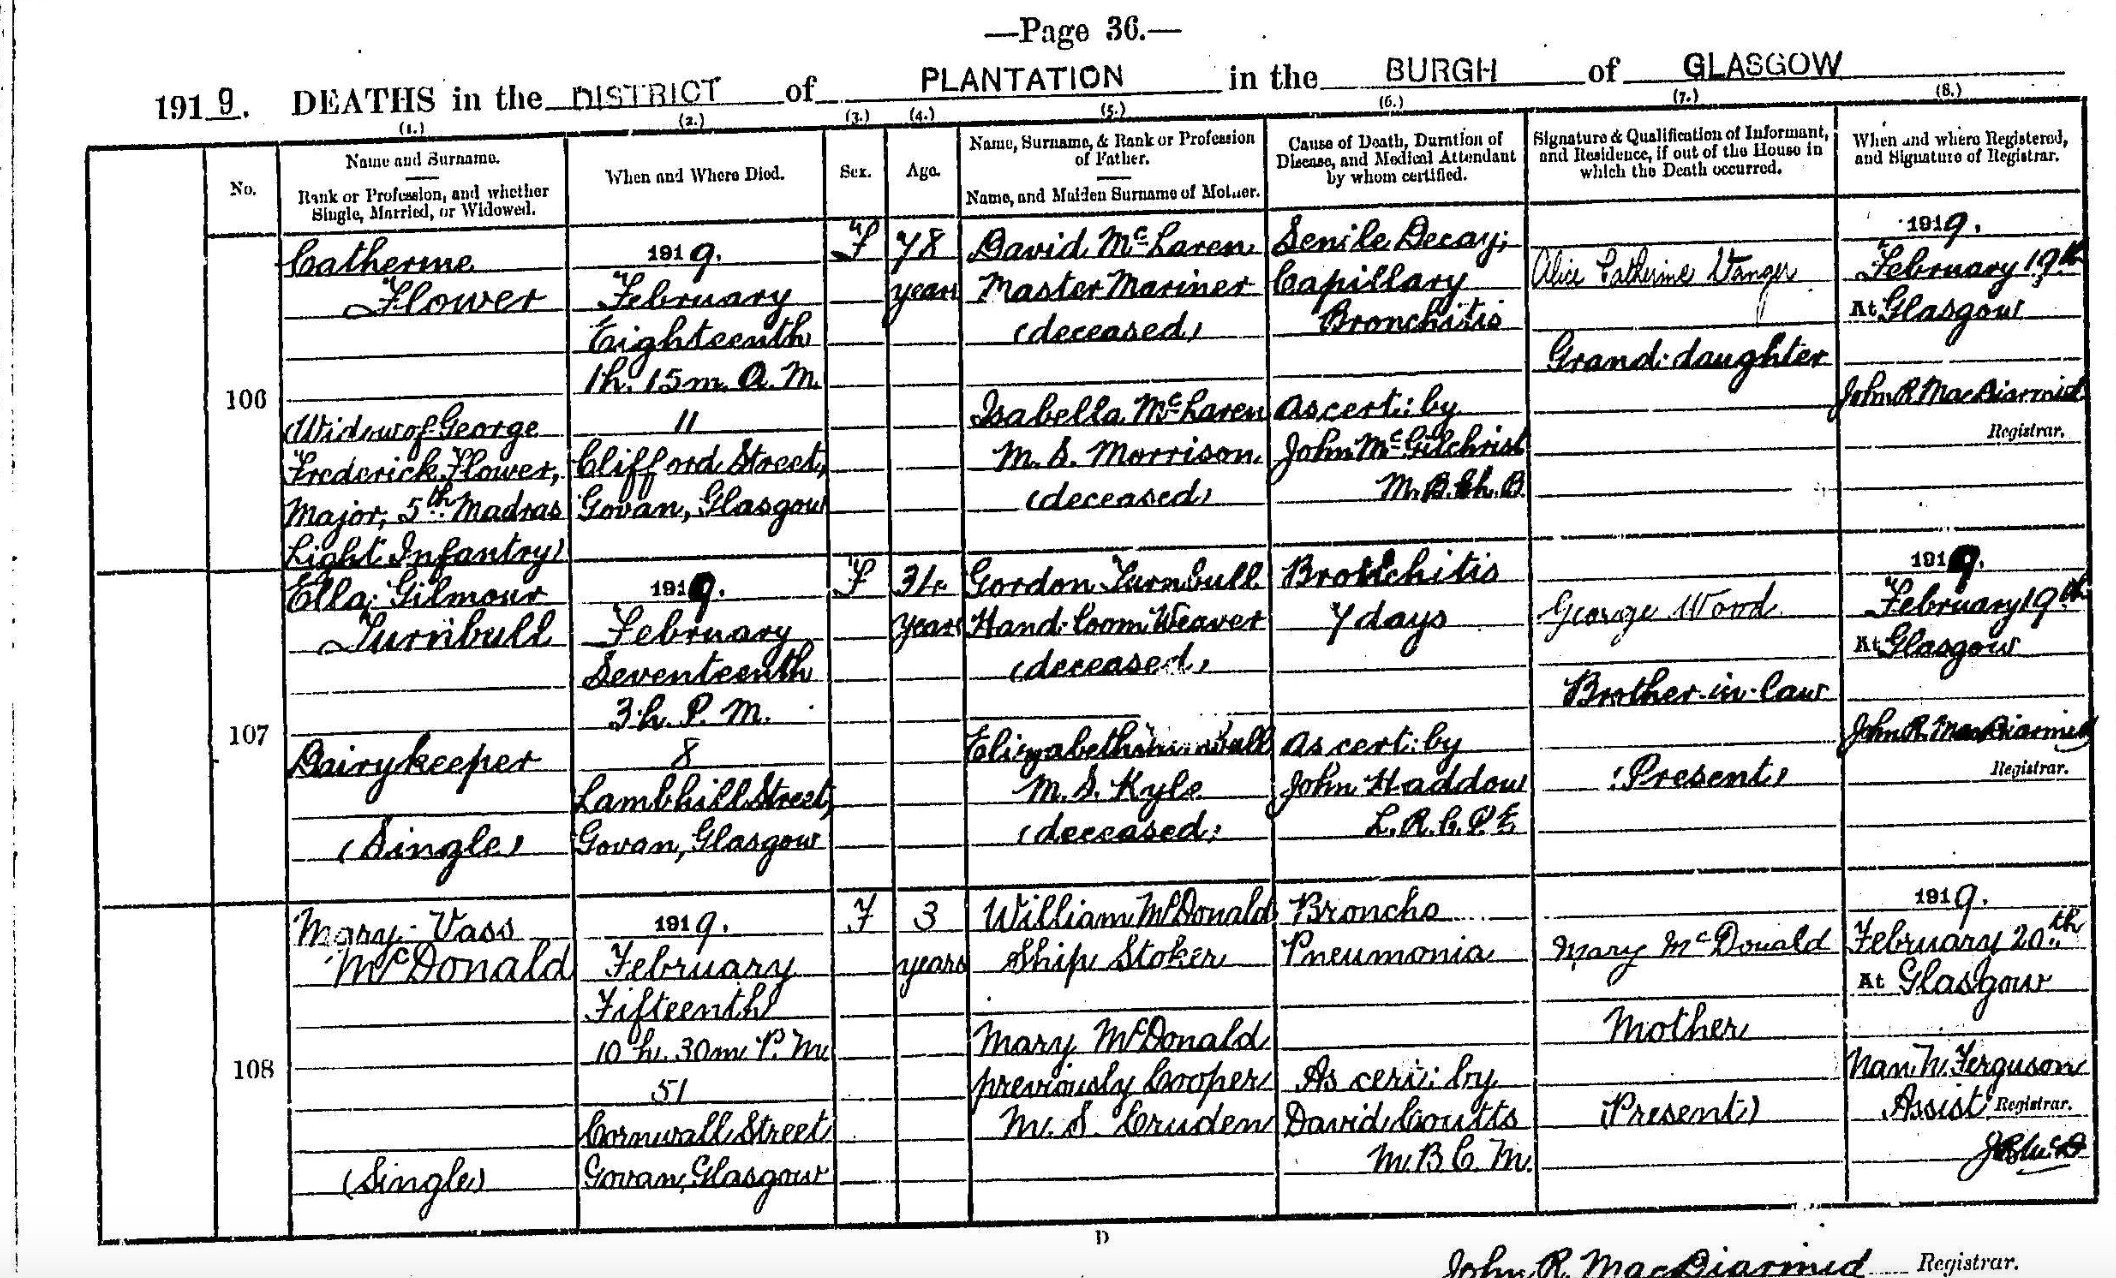 —Page 36.—
1919. DEATHS in the DISTRICT of PLANTATION in the BURGH of GLASGOW
(1.) (2.) (3.) (4.) (5.) (6.) (7.) (8.)
No.
Name and Surname.
Rank or Profession, and whether
Single, Married, or Widowed.
When and Where Died.
Sex.
Age.
Name, Surname, & Rank or Profession
of Father.
Name, and Maiden Surname of Mother.
Cause of Death, Duration of
Disease, and Medical Attendant
by whom certified.
Signature & Qualification of Informant,
and Residence, if out of the House in
which the Death occurred.
When and where Registered,
and Signature of Registrar.
106
Catherine
Flower
(Widow of George
Frederick Flower,
Major, 5th Madras
Light Infantry)
1919.
February
Eighteenth
1h. 15m. A.M.
11
Clifford Street,
Govan, Glasgow
F
78
years
David McLaren
Master Mariner
(deceased)
Isabella McLaren
M.S. Morrison
(deceased)
Senile Decay;
Capillary
Bronchitis
As cert: by
John McGilchrist
M.B.Ch.B.
Alice Catherine
Grand-daughter
1919.
February 19th
At Glasgow
John R MacDiarmid
Registrar.
107
Ella Gilmour
Turnbull
Dairykeeper
(Single)
1919.
February
Seventeenth
3h. P.M.
8
Lambhill Street,
Govan, Glasgow
F
34
years
Gordon Turnbull
Hand-loom Weaver
(deceased)
Elizabeth Turnbull
M.S. Kyle
(deceased)
Bronchitis
7 days
As cert: by
John Haddow
L.R.C.P.E.
George Wood
Brother-in-law
(Present)
1919.
February 19th
At Glasgow
John R. MacDiarmid
Registrar.
108
Mary Vass
McDonald
(Single)
1919.
February
Fifteenth
10h. 30m P.M.
51
Cornwall Street
Govan, Glasgow
F
3
years
William McDonald
Ship Stoker
Mary McDonald
previously Cooper
M.S. Cruden
Broncho
Pneumonia
As cert: by
David Coutts
M.B.C.M.
Mary McDonald
Mother
(Present)
1919.
February 20th
At Glasgow
Nan N. Ferguson
Assist Registrar.
D
John R. MacDiarmid Registrar.